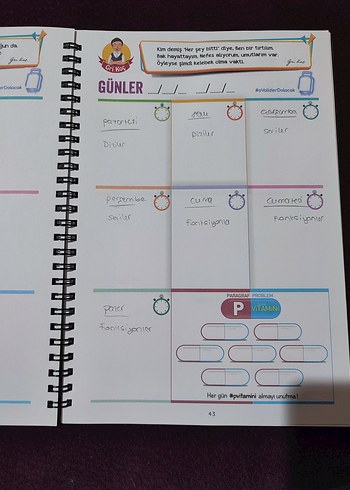 Kim demiş "Her şey bitti" diye. Ben bir tırtılım.
Bak hayattayım. Nefes alıyorum, umutlarım var.
Öyleyse şimdi kelebek olma vakti.
Gri Koç
GÜNLER __/__/__ __/__/__
pazartesi
Diziler
salı
diziler
Çarşamba
seriler
perşembe
seriler
cuma
Fonksiyonla
cumartesi
Fonksiyonlar
pazar
fonksiyonlar
PARAGRAF PROBLEM
P VİTAMİNİ
Her gün #pvitamini almayı unutma!
43